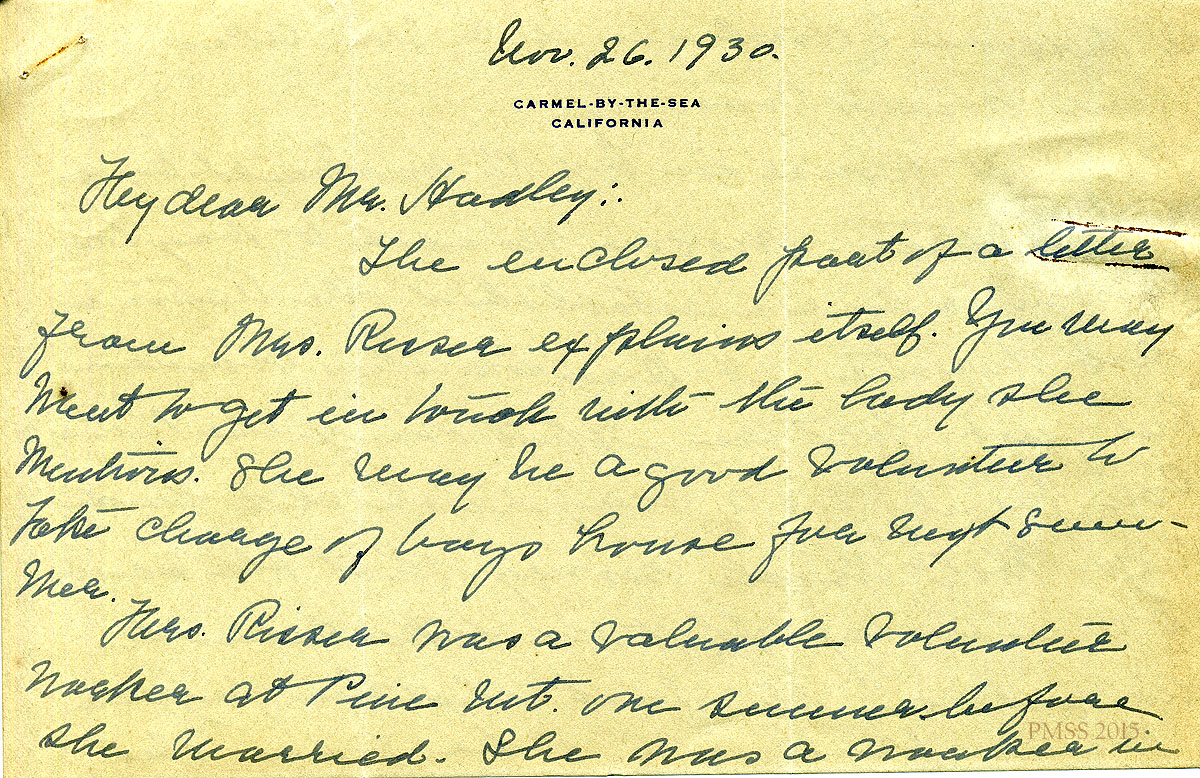 Nov. 26. 1930.
CARMEL-BY-THE-SEA
CALIFORNIA
My dear Mr. Hadley:.
The enclosed part of a letter
from Mrs. Risser explains itself. You may
want to get in touch with the lady she
mentions. She may be a good volunteer to
take charge of boys house for next sum-
mer.
Mrs. Risser was a valuable volunteer
worker at Pine Mt. one summer before
she married. She was a worker in
PMSS 2015